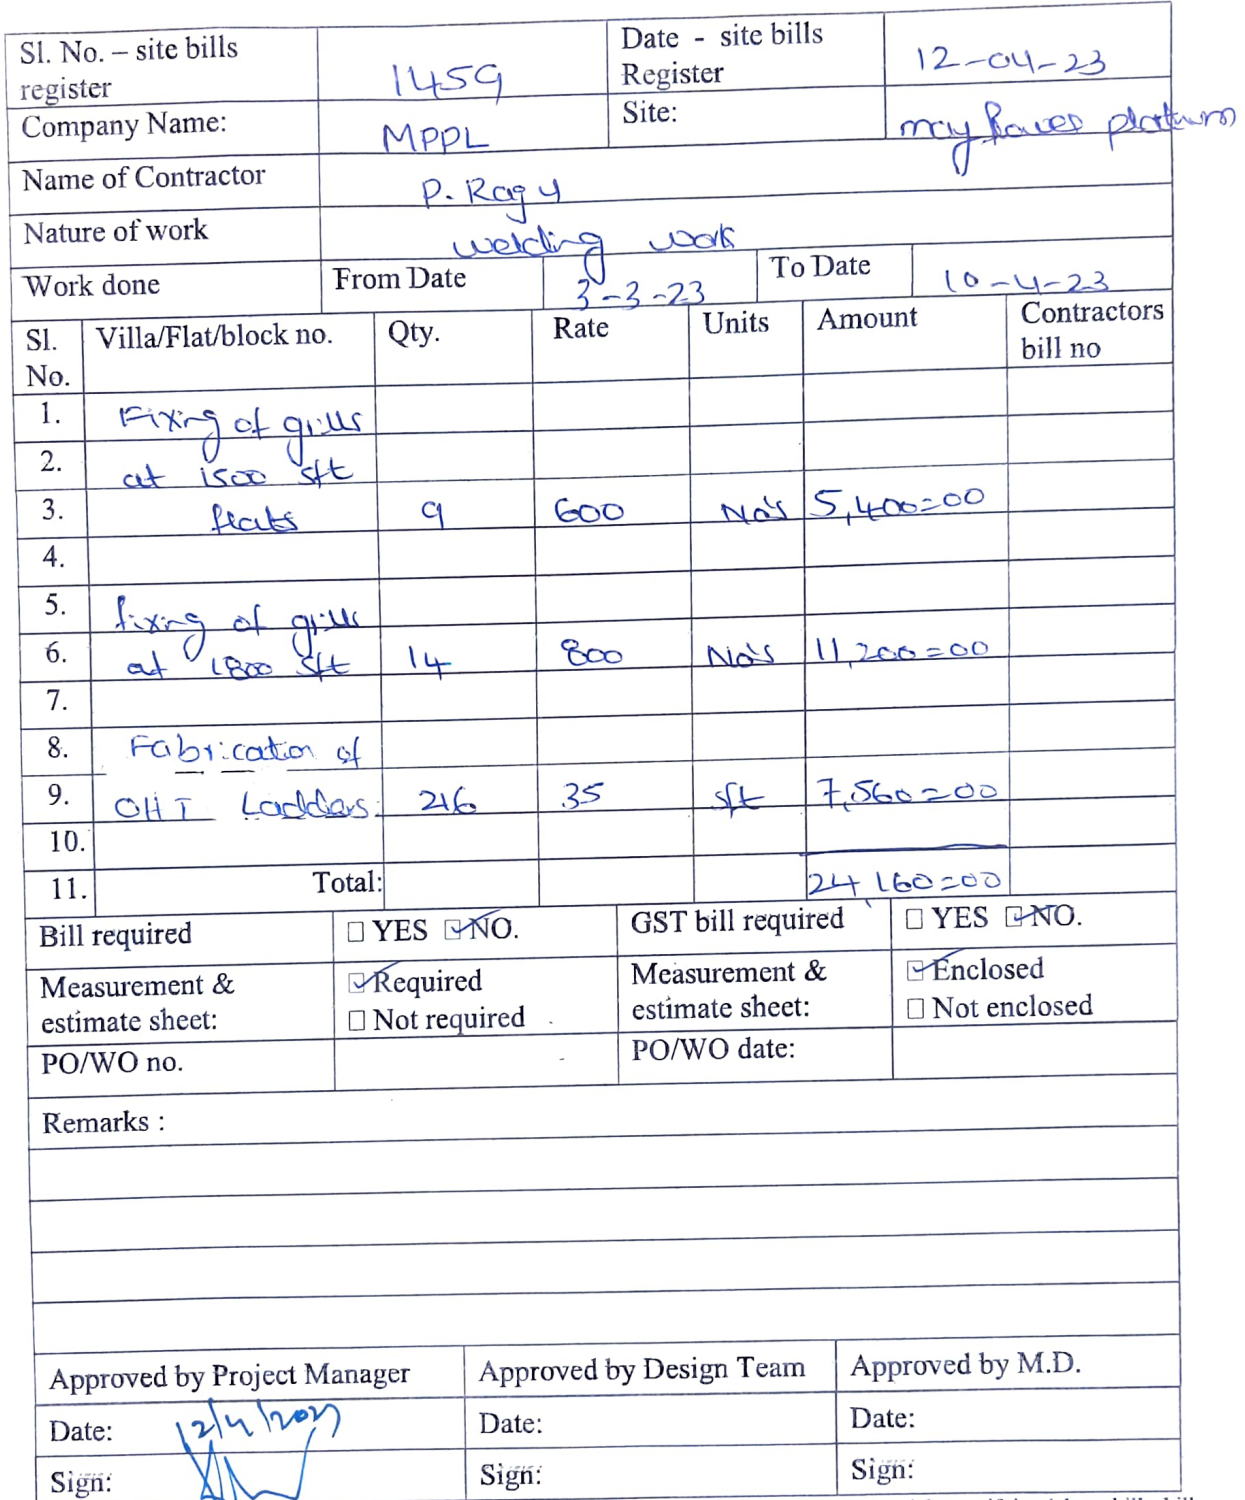 Sl. No. – site bills register 1459 Date - site bills Register 12-04-23
Company Name: MPPL Site: may flower platinum
Name of Contractor P. Ragu
Nature of work welding work
Work done From Date 3-3-23 To Date 10-4-23
Sl. No. Villa/Flat/block no. Qty. Rate Units Amount Contractors bill no
1. Fixing of grills
2. at 1500 sft
3. flats 9 600 No's 5,400=00
4.
5. fixing of grills
6. at 1800 sft 14 800 No's 11,200=00
7.
8. Fabrication of
9. OHT Ladders. 216 35 sft 7,560=00
10.
11. Total: 24,160=00
Bill required ☐ YES ☑ NO. GST bill required ☐ YES ☑ NO.
Measurement & estimate sheet: ☑ Required ☐ Not required Measurement & estimate sheet: ☑ Enclosed ☐ Not enclosed
PO/WO no. PO/WO date:
Remarks :
Approved by Project Manager Approved by Design Team Approved by M.D.
Date: 12/4/2023 Date: Date:
Sign: Sign: Sign: